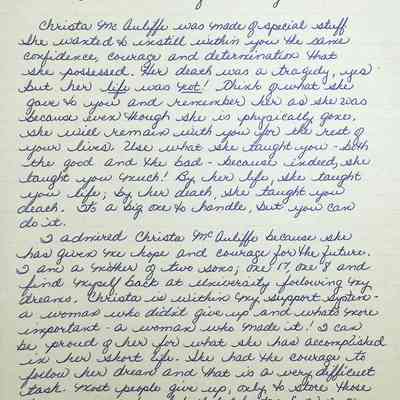 Christa McAuliffe was made of special stuff.
She wanted to instill within you the same
confidence, courage and determination that
she possessed. Her death was a tragedy, yes
but her life was not! Think of what she
gave to you and remember her as she was
because even though she is physically gone,
she will remain with you for the rest of
your lives. Use what she taught you - both
the good and the bad - because indeed, she
taught you much! By her life, she taught
you life; by her death, she taught you
death. It's a big one to handle, but you can
do it.
I admired Christa McAuliffe because she
has given me hope and courage for the future.
I am a mother of two sons; one 17, one 8 and
find myself back at University following my
dreams. Christa is within my support system -
a woman who didn't give up and what's more
important - a woman who made it! I can
be proud of her for what she has accomplished
in her short life. She had the courage to
follow her dream and that is a very difficult
task. Most people give up, only to store those